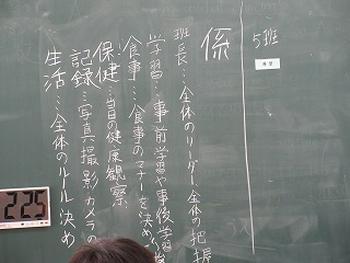 5班
係
班長…全体のリーダー全体の把握
学習…事前学習や事後学習
食事…食事のマナーを決め
保健…当日の健康観察
記録…写真撮影カメラの
生活…全体のルール決め
225